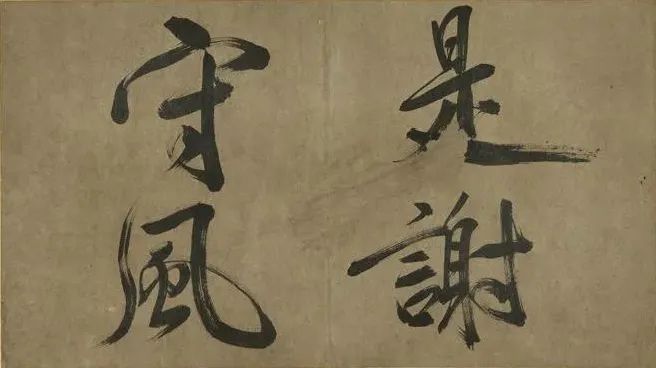 是謝
守風